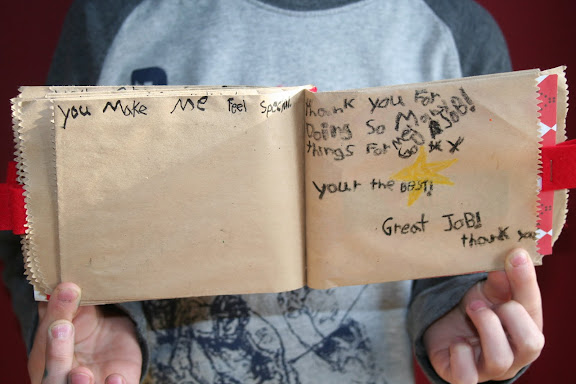 you Make Me Feel Special
thank you For
Doing So Many
things For Me
GOOD JOB!
your the BEST!
Great JoB!
thank you